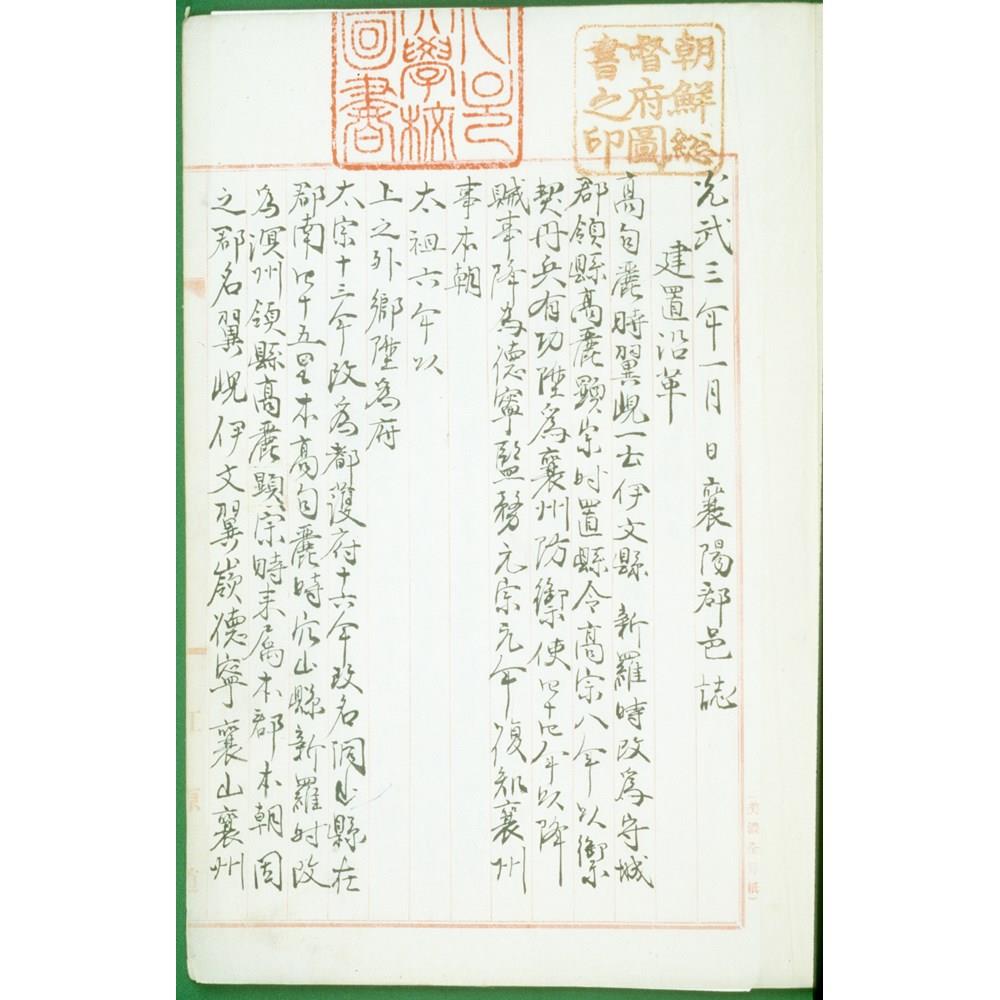 朝鮮総
督府圖
書之印
大學校
圖書
光武三年一月 日襄陽郡邑誌
建置沿革
高句麗時翼峴一云伊文縣 新羅時改爲守城
郡領縣高麗顯宗时置縣令高宗八年以禦
契丹兵有功陞爲襄州防禦使四十四年以降
賊事降為德寧監務元宗元年復知襄州
事本朝
太祖六年以
上之外鄕陞爲府
太宗十三年改爲都護府十六年改名洞山縣在
郡南四十五里本高句麗時穴山縣新羅时改
為溟州領縣高麗顯宗時来属本郡本朝因
之郡名翼峴伊文翼嶺德寧襄山襄州